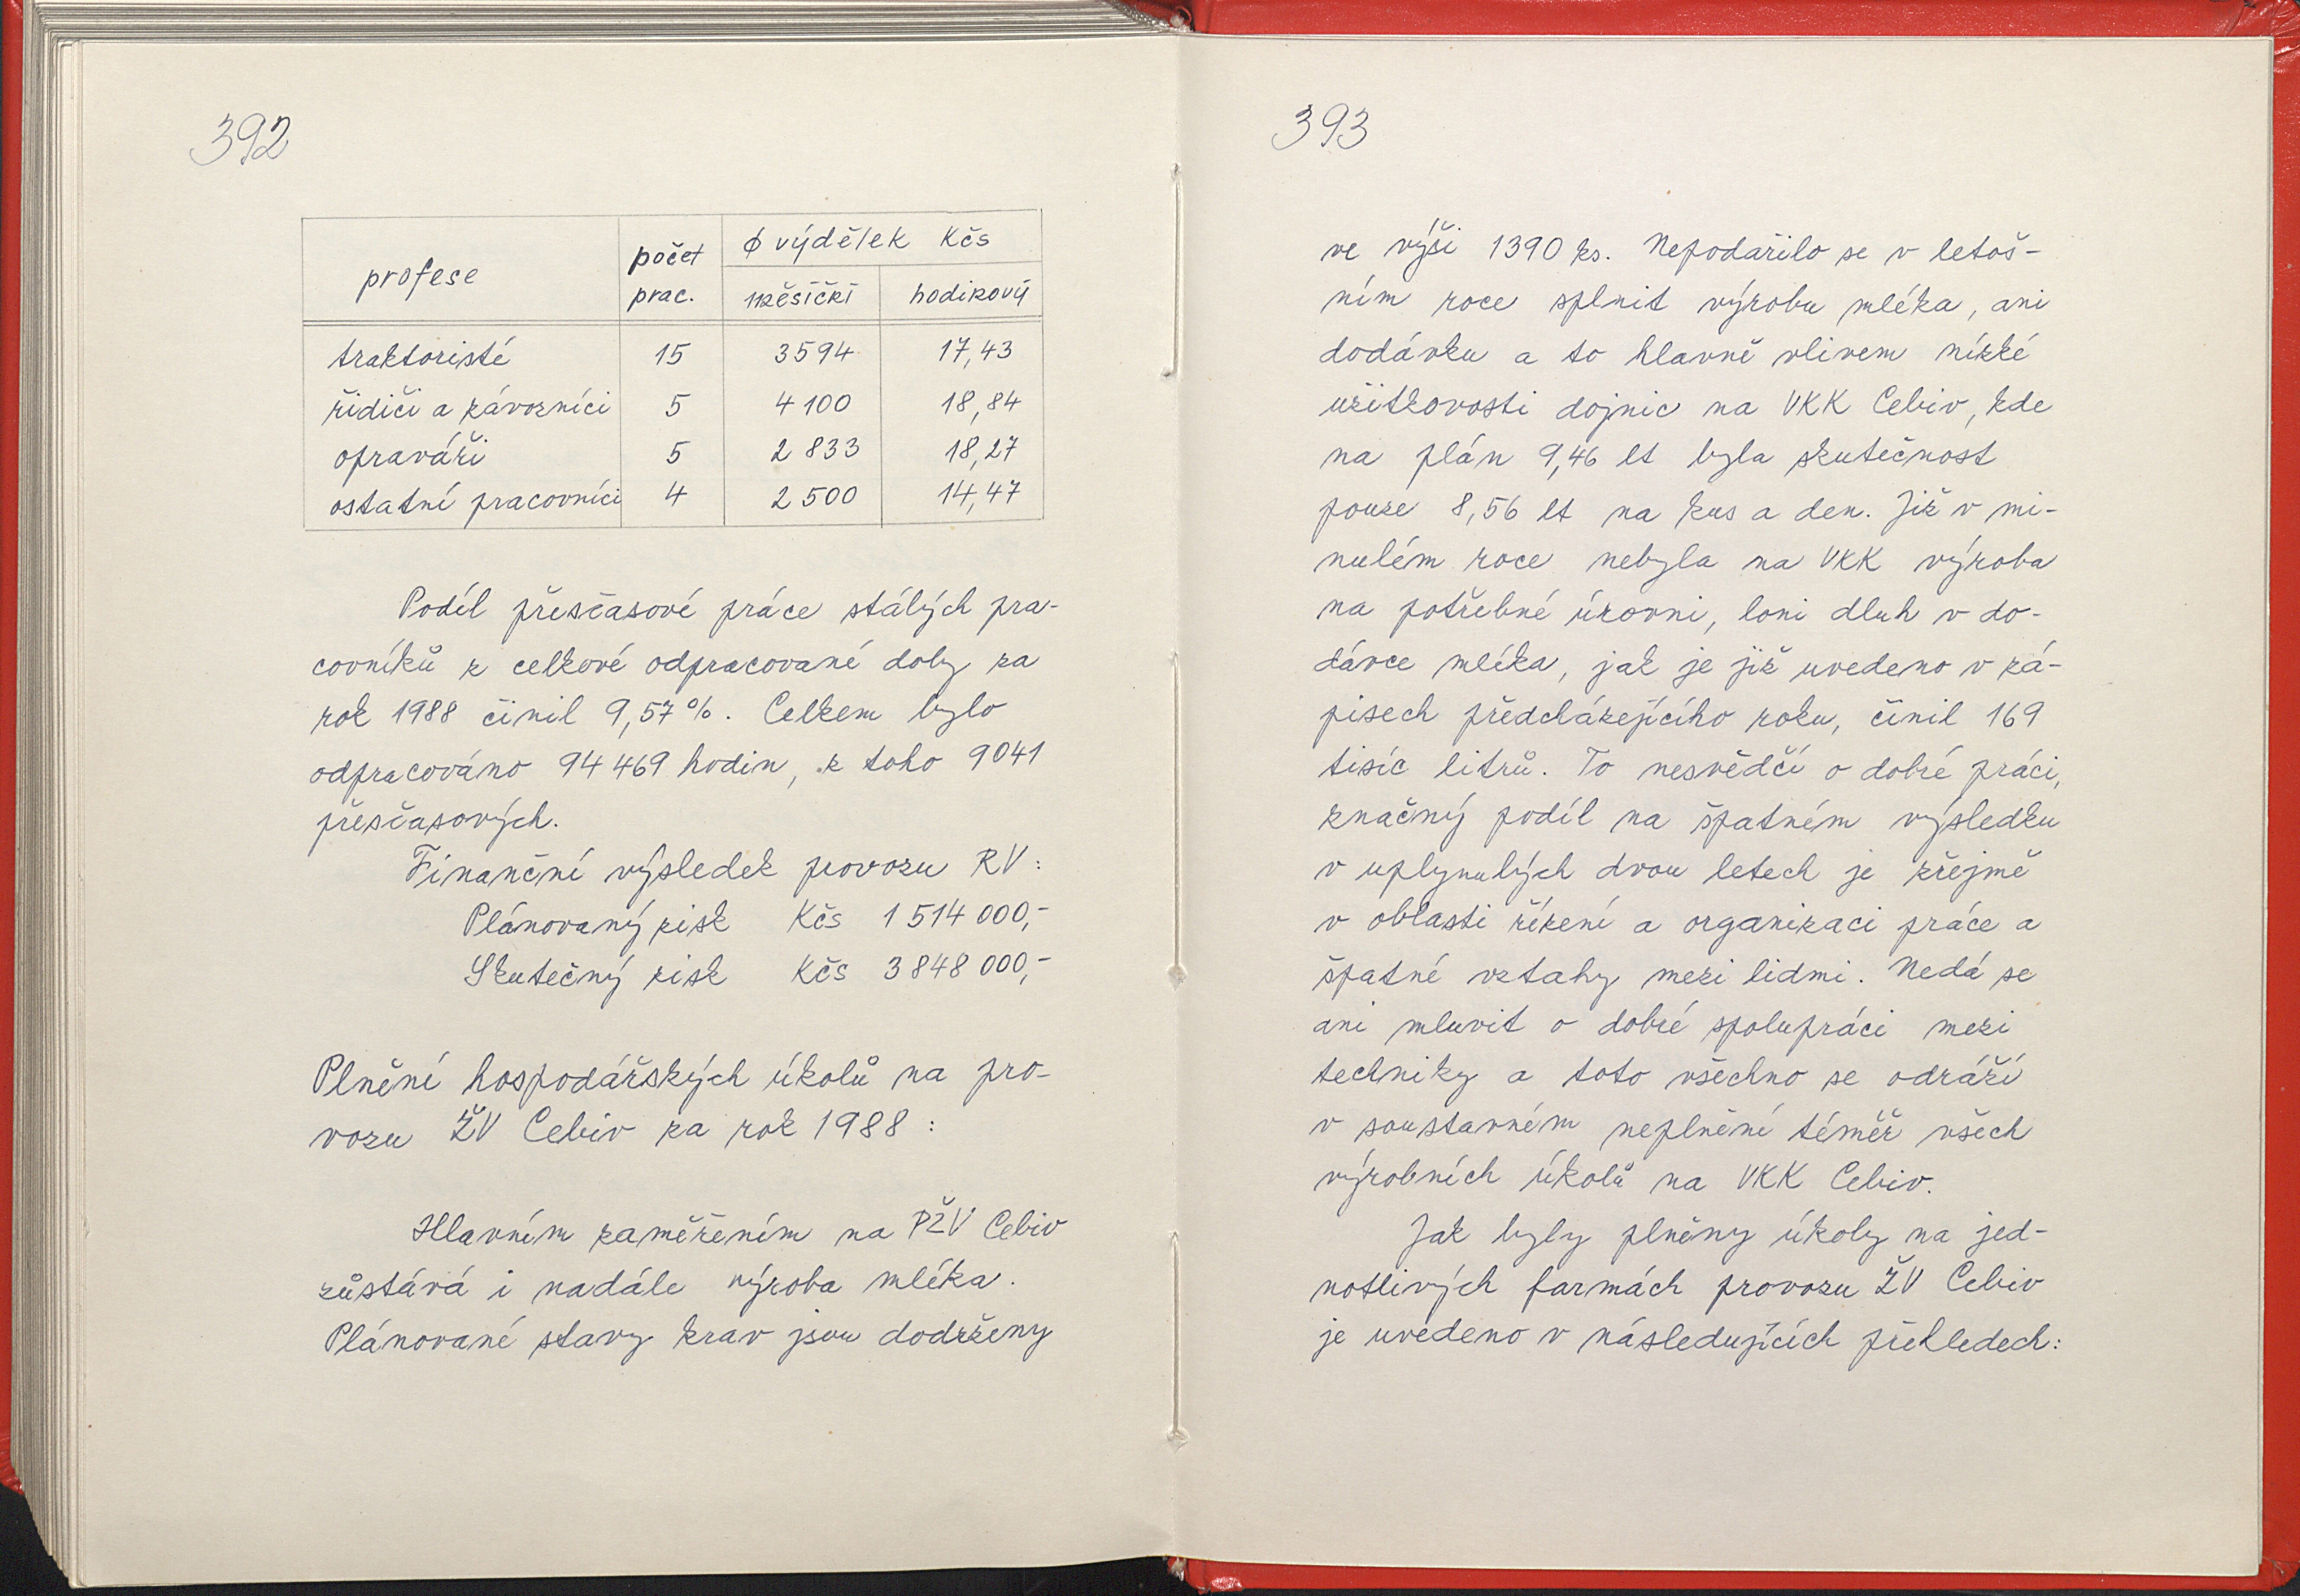 392
profese počet prac. φ výdělek Kčs
měsíční hodinový
traktoristé 15 3594 17,43
řidiči a závozníci 5 4100 18,84
opraváři 5 2 833 18,27
ostatní pracovníci 4 2 500 14,47
Podíl přesčasové práce stálých pra-
covníků z celkové odpracované doby za
rok 1988 činil 9,57 %. Celkem bylo
odpracováno 94 469 hodin, z toho 9041
přesčasových.
Finanční výsledek provozu RV:
Plánovaný zisk Kčs 1 514 000,-
Skutečný zisk Kčs 3 848 000,-
Plnění hospodářských úkolů na pro-
vozu ŽV Cebiv za rok 1988:
Hlavním zaměřením na PŽV Cebiv
zůstává i nadále výroba mléka.
Plánované stavy krav jsou dodrženy
393
ve výši 1390 ks. Nepodařilo se v letoš-
ním roce splnit výrobu mléka, ani
dodávku a to hlavně vlivem nízké
užitkovosti dojnic na VKK Cebiv, kde
na plán 9,46 lt byla skutečnost
pouze 8,56 lt na kus a den. Již v mi-
nulém roce nebyla na VKK výroba
na potřebné úrovni, loni dluh v do-
dávce mléka, jak je již uvedeno v zá-
pisech předcházejícího roku, činil 169
tisíc litrů. To nesvědčí o dobré práci,
značný podíl na špatném výsledku
v uplynulých dvou letech je zřejmě
v oblasti řízení a organizaci práce a
špatné vztahy mezi lidmi. Nedá se
ani mluvit o dobré spolupráci mezi
techniky a toto všechno se odráží
v soustavném neplnění téměř všech
výrobních úkolů na VKK Cebiv.
Jak byly plněny úkoly na jed-
notlivých farmách provozu ŽV Cebiv
je uvedeno v následujících přehledech: